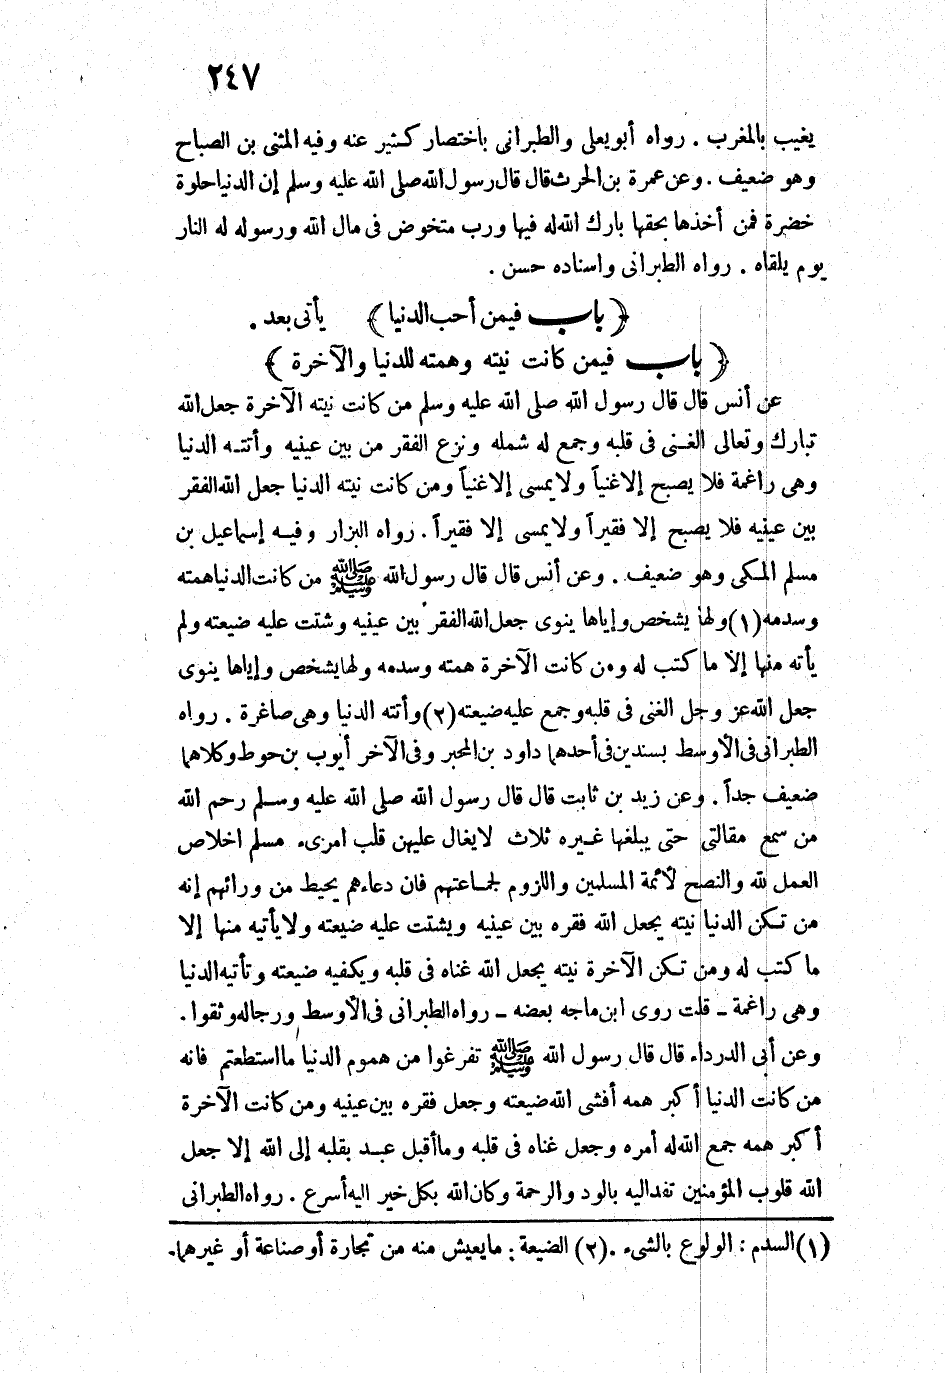 ٢٤٧
يغيب بالمغرب . رواه أبويعلى والطبرانى باختصار كثير عنه وفيه المثنى بن الصباح
وهو ضعيف . وعن عمرة بن الحرث قال قال رسول الله صلى الله عليه وسلم إن الدنيا حلوة
خضرة فمن أخذها بحقها بارك الله له فيها ورب متخوض فى مال الله ورسوله له النار
يوم يلقاه . رواه الطبرانى واسناده حسن .
﴿ باب فيمن أحب الدنيا ﴾ يأتى بعد .
﴿ باب فيمن كانت نيته وهمته للدنيا والآخرة ﴾
عن أنس قال قال رسول الله صلى الله عليه وسلم من كانت نيته الآخرة جعل الله
تبارك وتعالى الغنى فى قلبه وجمع له شمله ونزع الفقر من بين عينيه وأتته الدنيا
وهى راغمة فلا يصبح إلا غنياً ولا يمسى إلا غنياً ومن كانت نيته الدنيا جعل الله الفقر
بين عينيه فلا يصبح إلا فقيراً ولا يمسى إلا فقيراً . رواه البزار وفيه إسماعيل بن
مسلم المكى وهو ضعيف . وعن أنس قال قال رسول الله ﷺ من كانت الدنيا همته
وسدمه (١) ولها يشخص وإياها ينوى جعل الله الفقر بين عينيه وشتت عليه ضيعته ولم
يأته منها إلا ما كتب له ومن كانت الآخرة همته وسدمه ولها يشخص وإياها ينوى
جعل الله عز وجل الغنى فى قلبه وجمع عليه ضيعته (٢) وأتته الدنيا وهى صاغرة . رواه
الطبرانى فى الأوسط بسندين فى أحدهما داود بن المحبر وفى الآخر أيوب بن حوط وكلاهما
ضعيف جداً . وعن زيد بن ثابت قال قال رسول الله صلى الله عليه وسلم رحم الله
من سمع مقالتى حتى يبلغها غيره ثلاث لا يغال عليهن قلب امرىء مسلم اخلاص
العمل لله والنصح لأئمة المسلمين واللزوم لجماعتهم فان دعاءهم يحيط من ورائهم إنه
من تكن الدنيا نيته يجعل الله فقره بين عينيه ويشتت عليه ضيعته ولا يأتيه منها إلا
ما كتب له ومن تكن الآخرة نيته يجعل الله غناه فى قلبه ويكفيه ضيعته وتأتيه الدنيا
وهى راغمة ـ قلت روى ابن ماجه بعضه ـ رواه الطبرانى فى الأوسط ورجاله وثقوا .
وعن أبى الدرداء قال قال رسول الله ﷺ تفرغوا من هموم الدنيا ما استطعتم فانه
من كانت الدنيا أكبر همه أفشى الله ضيعته وجعل فقره بين عينيه ومن كانت الآخرة
أكبر همه جمع الله له أمره وجعل غناه فى قلبه وما أقبل عبد بقلبه إلى الله إلا جعل
الله قلوب المؤمنين تفد اليه بالود والرحمة وكان الله بكل خير اليه أسرع . رواه الطبرانى
(١) السدم : الولوع بالشىء . (٢) الضيعة : ما يعيش منه من تجارة أو صناعة أو غيرهما.